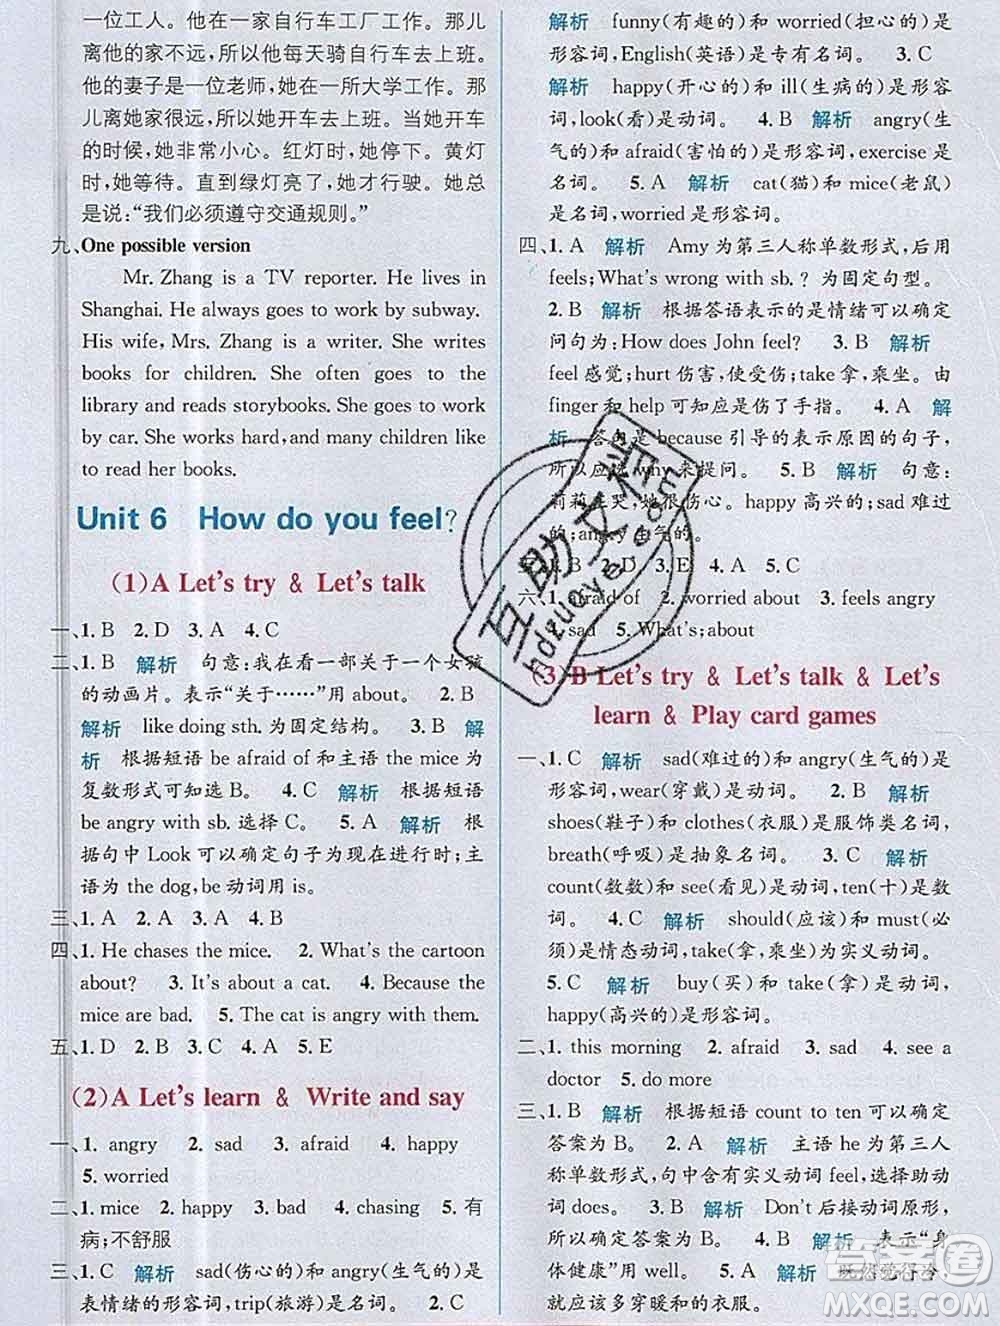 一位工人。他在一家自行车工厂工作。那儿
离他的家不远,所以他每天骑自行车去上班。
他的妻子是一位老师,她在一所大学工作。那
儿离她家很远,所以她开车去上班。当她开车
的时候,她非常小心。红灯时,她停下。黄灯
时,她等待。直到绿灯亮了,她才行驶。她总
是说:“我们必须遵守交通规则。”
九、One possible version
Mr. Zhang is a TV reporter. He lives in
Shanghai. He always goes to work by subway.
His wife, Mrs. Zhang is a writer. She writes
books for children. She often goes to the
library and reads storybooks. She goes to work
by car. She works hard, and many children like
to read her books.
Unit 6 How do you feel?
(1)A Let's try & Let's talk
一、1. B 2. D 3. A 4. C
二、1. B 解析 句意:我在看一部关于一个女孩
的动画片。表示“关于……”用 about。 2. B
解析 like doing sth. 为固定结构。 3. B 解
析 根据短语 be afraid of 和主语 the mice 为
复数形式可知选 B。 4. C 解析 根据短语
be angry with sb. 选择 C。 5. A 解析 根
据句中 Look 可以确定句子为现在进行时;主
语为 the dog, be 动词用 is。
三、1. A 2. A 3. A 4. B
四、1. He chases the mice. 2. What's the cartoon
about? 3. It's about a cat. 4. Because the
mice are bad. 5. The cat is angry with them.
五、1. D 2. B 3. C 4. A 5. E
(2)A Let's learn & Write and say
一、1. angry 2. sad 3. afraid 4. happy
5. worried
二、1. mice 2. happy 3. bad 4. chasing 5. 有
病;不舒服
三、1. C 解析 sad(伤心的)和 angry(生气的)是
表情绪的形容词,trip(旅游)是名词。 2. C
解析 funny(有趣的)和 worried(担心的)是
形容词,English(英语)是专有名词。 3. C
解析 happy(开心的)和 ill(生病的)是形容
词,look(看)是动词。 4. B 解析 angry(生
气的)和 afraid(害怕的)是形容词,exercise 是
名词。 5. A 解析 cat(猫)和 mice(老鼠)
是名词,worried 是形容词。
四、1. A 解析 Amy 为第三人称单数形式,后用
feels;What's wrong with sb.? 为固定句型。
2. B 解析 根据答语表示的是情绪可以确定
问句为:How does John feel? 3. B 解析
feel 感觉;hurt 伤害,使受伤;take 拿,乘坐。由
finger 和 help 可知应是伤了手指。 4. A 解
析 答的是 because 引导的表示原因的句子,
所以应选 why 来提问。 5. B 解析 句意:
莉莉在哭,她很伤心。happy 高兴的;sad 难过
的;angry 生气的。
五、1. B 2. D 3. E 4. A 5. C
六、1. afraid of 2. worried about 3. feels angry
4. so sad 5. What's;about
(3)B Let's try & Let's talk & Let's
learn & Play card games
一、1. C 解析 sad(难过的)和 angry(生气的)是
形容词,wear(穿戴)是动词。 2. A 解析
shoes(鞋子)和 clothes(衣服)是服饰类名词,
breath(呼吸)是抽象名词。 3. B 解析
count(数数)和 see(看见)是动词,ten(十)是数
词。 4. C 解析 should(应该)和 must(必
须)是情态动词,take(拿,乘坐)为实义动词。
5. C 解析 buy(买)和 take(拿)是动词,
happy(高兴的)是形容词。
二、1. this morning 2. afraid 3. sad 4. see a
doctor 5. do more
三、1. B 解析 根据短语 count to ten 可以确定
答案为 B。 2. A 解析 主语 he 为第三人
称单数形式,句中含有实义动词 feel,选择助动
词 does。 3. B 解析 Don't 后接动词原形,
所以可以确定答案为 B。 4. B 解析 表示“身
体健康”用 well。 5. A 解析 既然觉得冷
就应该多穿暖和的衣服。
百助文根
zhuoye.com
答案圈
MXQE.COM